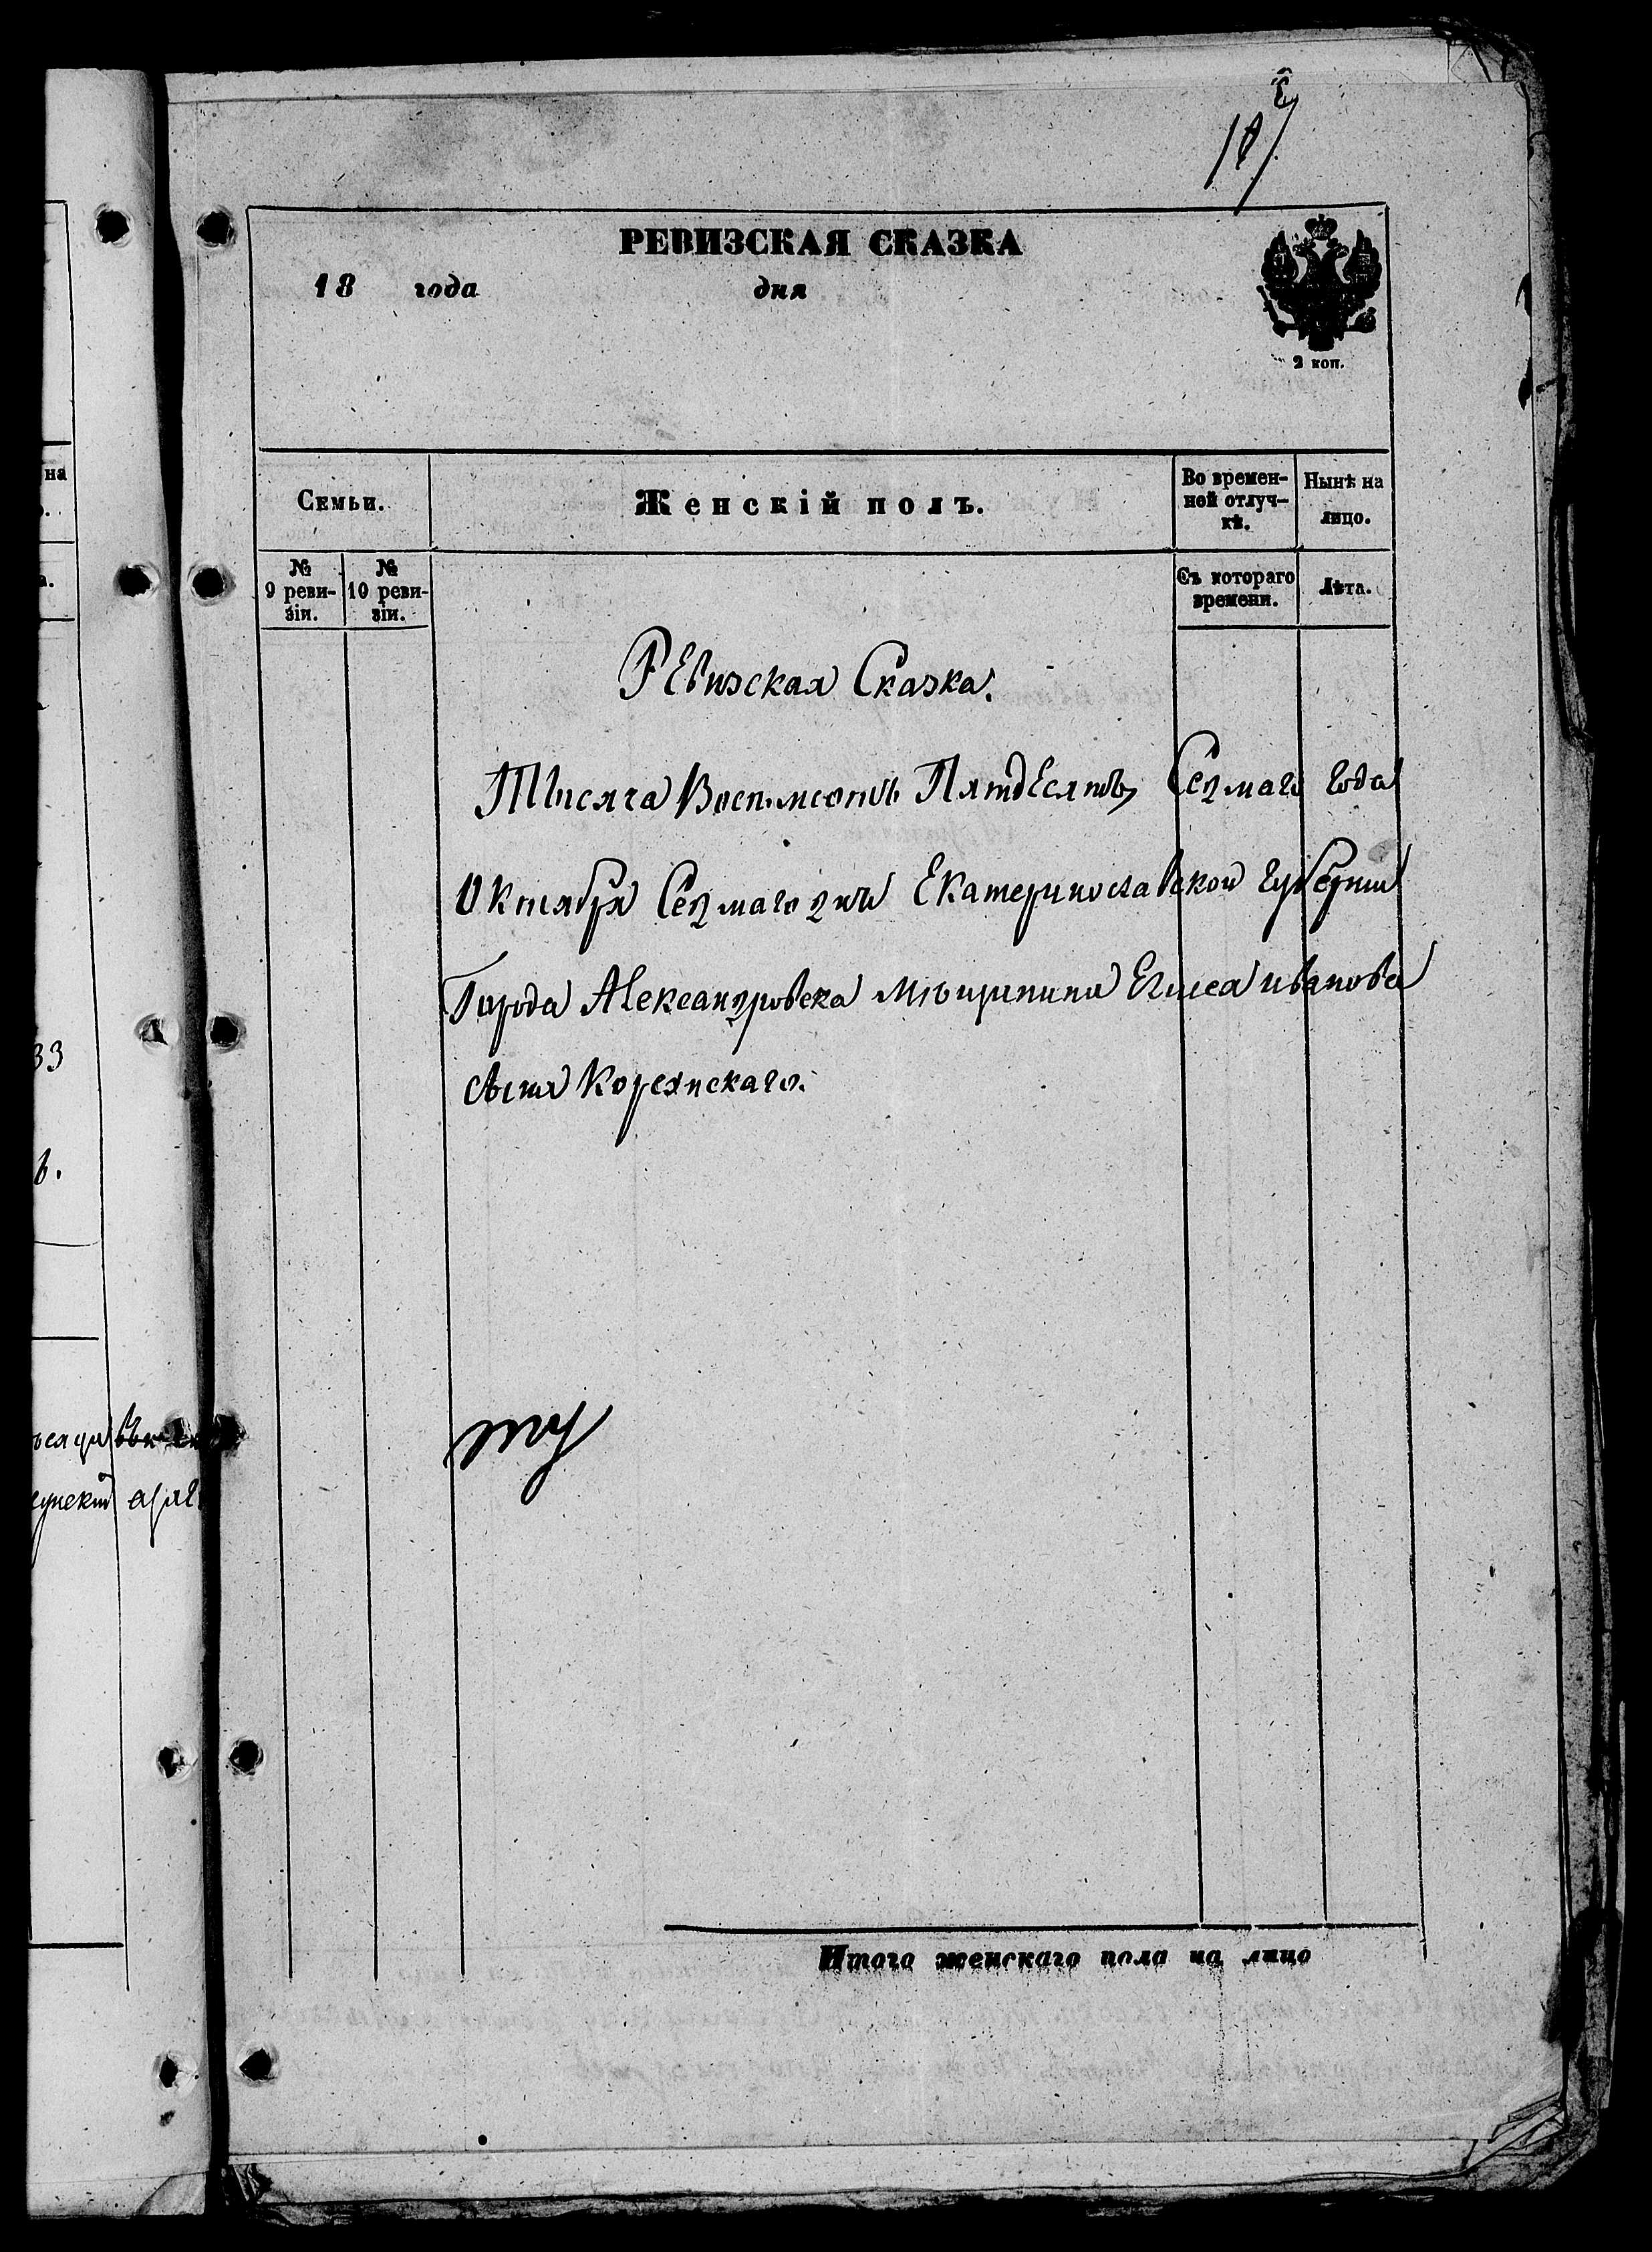 107
РЕВИЗСКАЯ СКАЗКА
18 года дня
2 коп.
Семьи. Женскій полъ. Во времен-
ней отлуч-
кѣ. Нынѣ на
лицо.
№
9 реви-
зіи. №
10 реви-
зіи. Съ котораго
времени. Лѣта.
Ревизская Сказка.
Тысяча Восемсотъ Пятдесятъ Седмаго года
Октября Седмаго дня Екатеринославской губерніи
Города Александровска мѣщанина Ивано­ва
сына Корсунскаго.
Итого женскаго пола на лицо
на
33